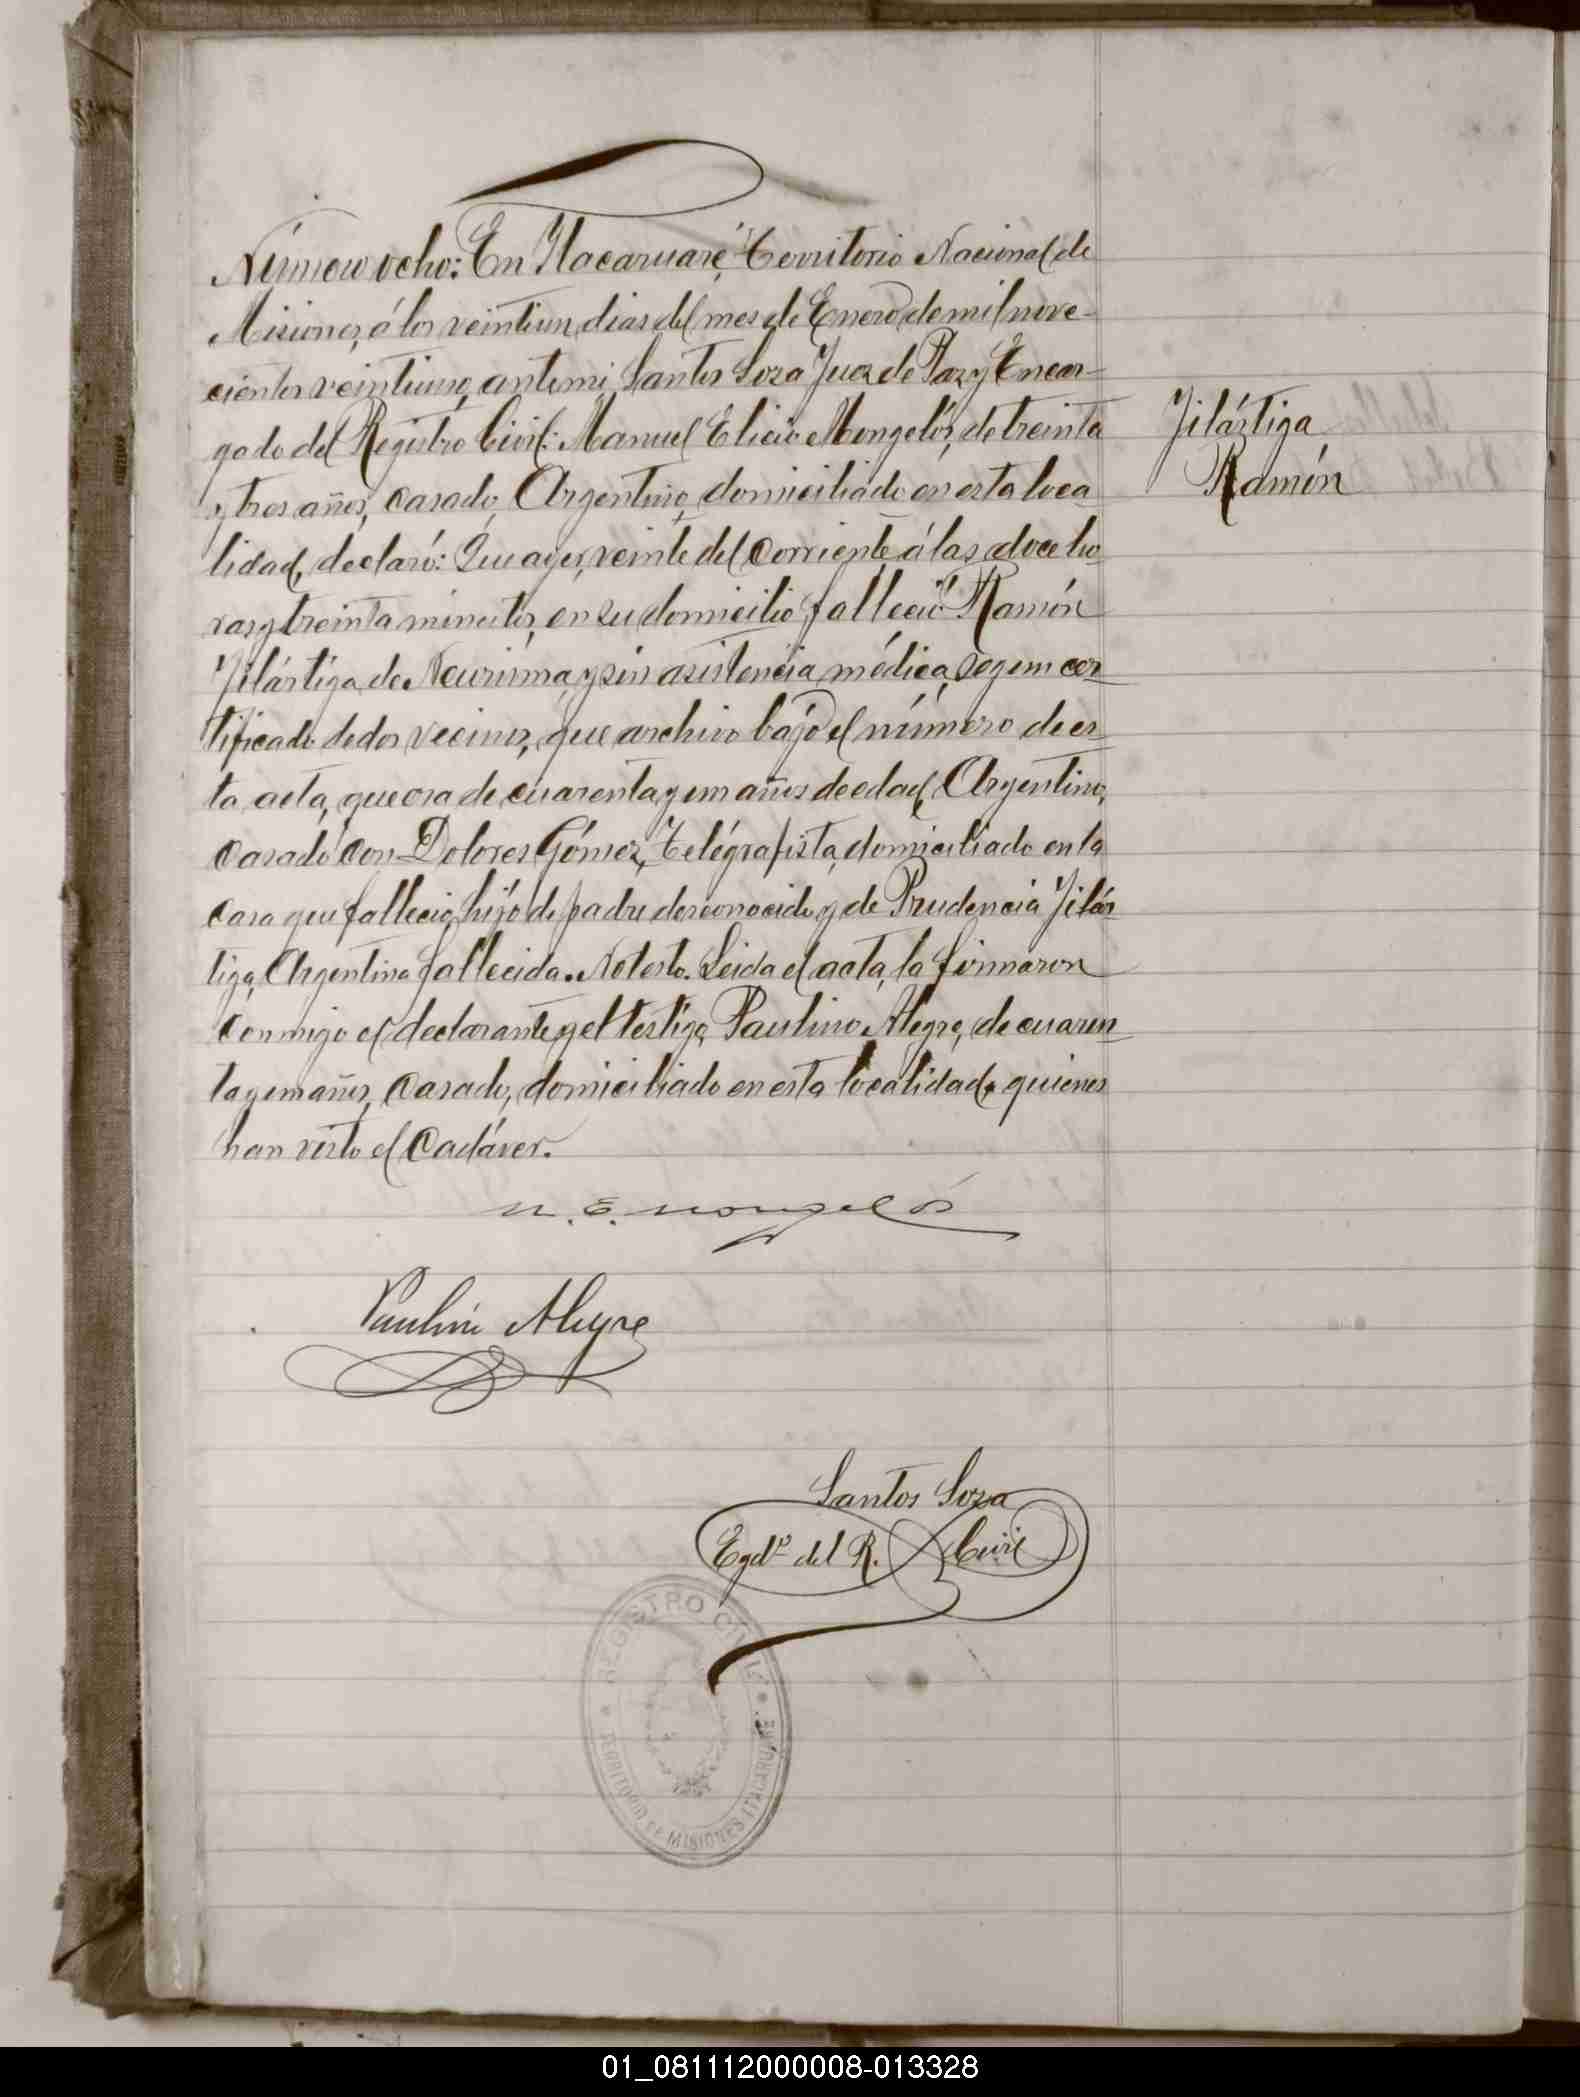 Número ocho: En Itacaruaré, Territorio Nacional de
Misiones, á los veintiun dias del mes de Enero de mil nove-
cientos veintiuno, ante mi, Santos Soza Juez de Paz y Encar-
gado del Registro Civil: Manuel Elicio Mongelós, de treinta
y tres años, casado, Argentino, domiciliado en esta loca
lidad, declaró: Que ayer, veinte del corriente á las doce ho-
ras y treinta minutos, en su domicilio, falleció Ramón
Yilártiga, de Neurisma, y sin asistencia médica, segun cer-
tificado de dos vecinos, que archivo bajo el número de es-
ta acta, que era de cuarenta y un años de edad, Argentino,
casado con Dolores Gómez, Telégrafista, domiciliado en la
casa que fallecio, hijo de padre desconocido y de Prudencia Yilár
tiga, Argentina fallecida. No testo. Leida el acta, la firmaron
conmigo el declarante y el testigo, Paulino Alegre, de cuaren
ta y un años, casado, domiciliado en esta localidad, quienes
han visto el cadáver.
Yilártiga
Ramón
M. E. Mongelós
Paulino Alegre
Santos Soza
Egdo del R. Civil
REGISTRO CIVIL
TERRITORIO DE MISIONES ITACARUARE
01_081112000008-013328